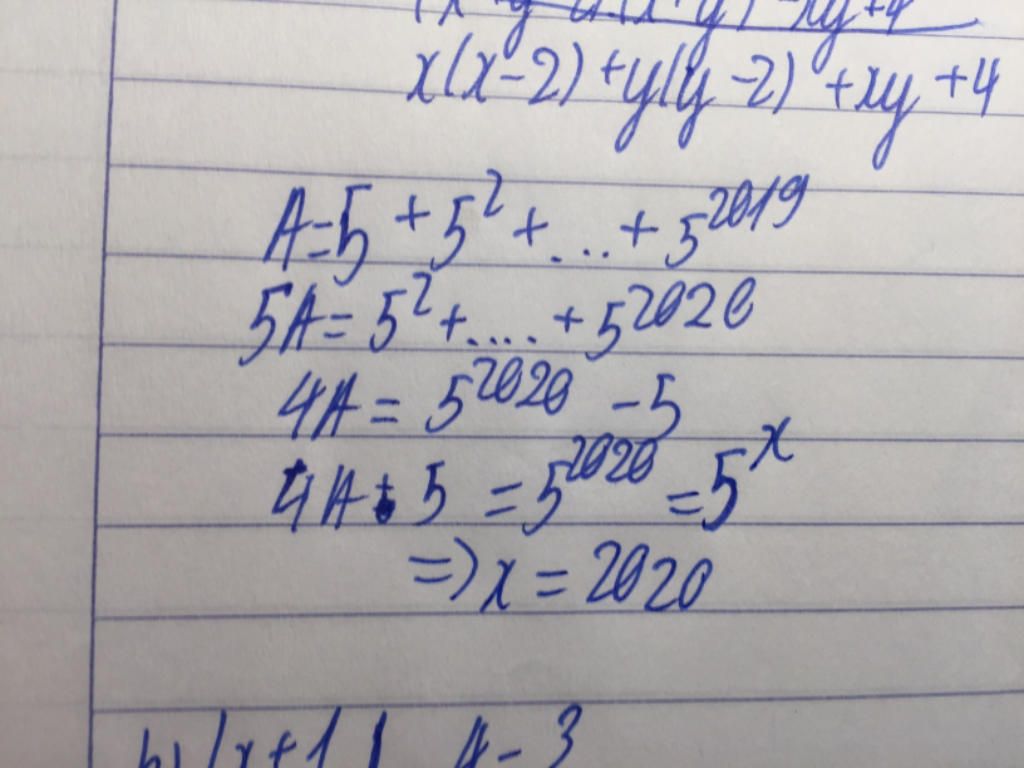 x(x-2)+y(y-2)+xy+4
A=5+5²+...+5²⁰¹⁹
5A=5²+....+5²⁰²⁰
4A=5²⁰²⁰-5
4A+5=5²⁰²⁰=5ˣ
=>x=2020